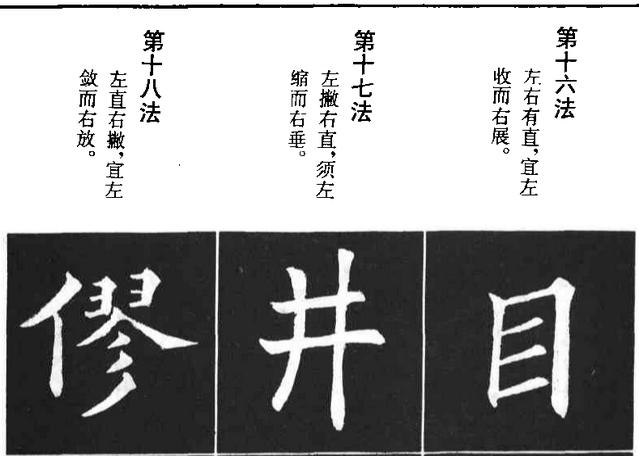 第十六法
左右有直，宜左
收而右展。
目
第十七法
左撇右直，须左
缩而右垂。
井
第十八法
左直右撇，宜左
敛而右放。
僇